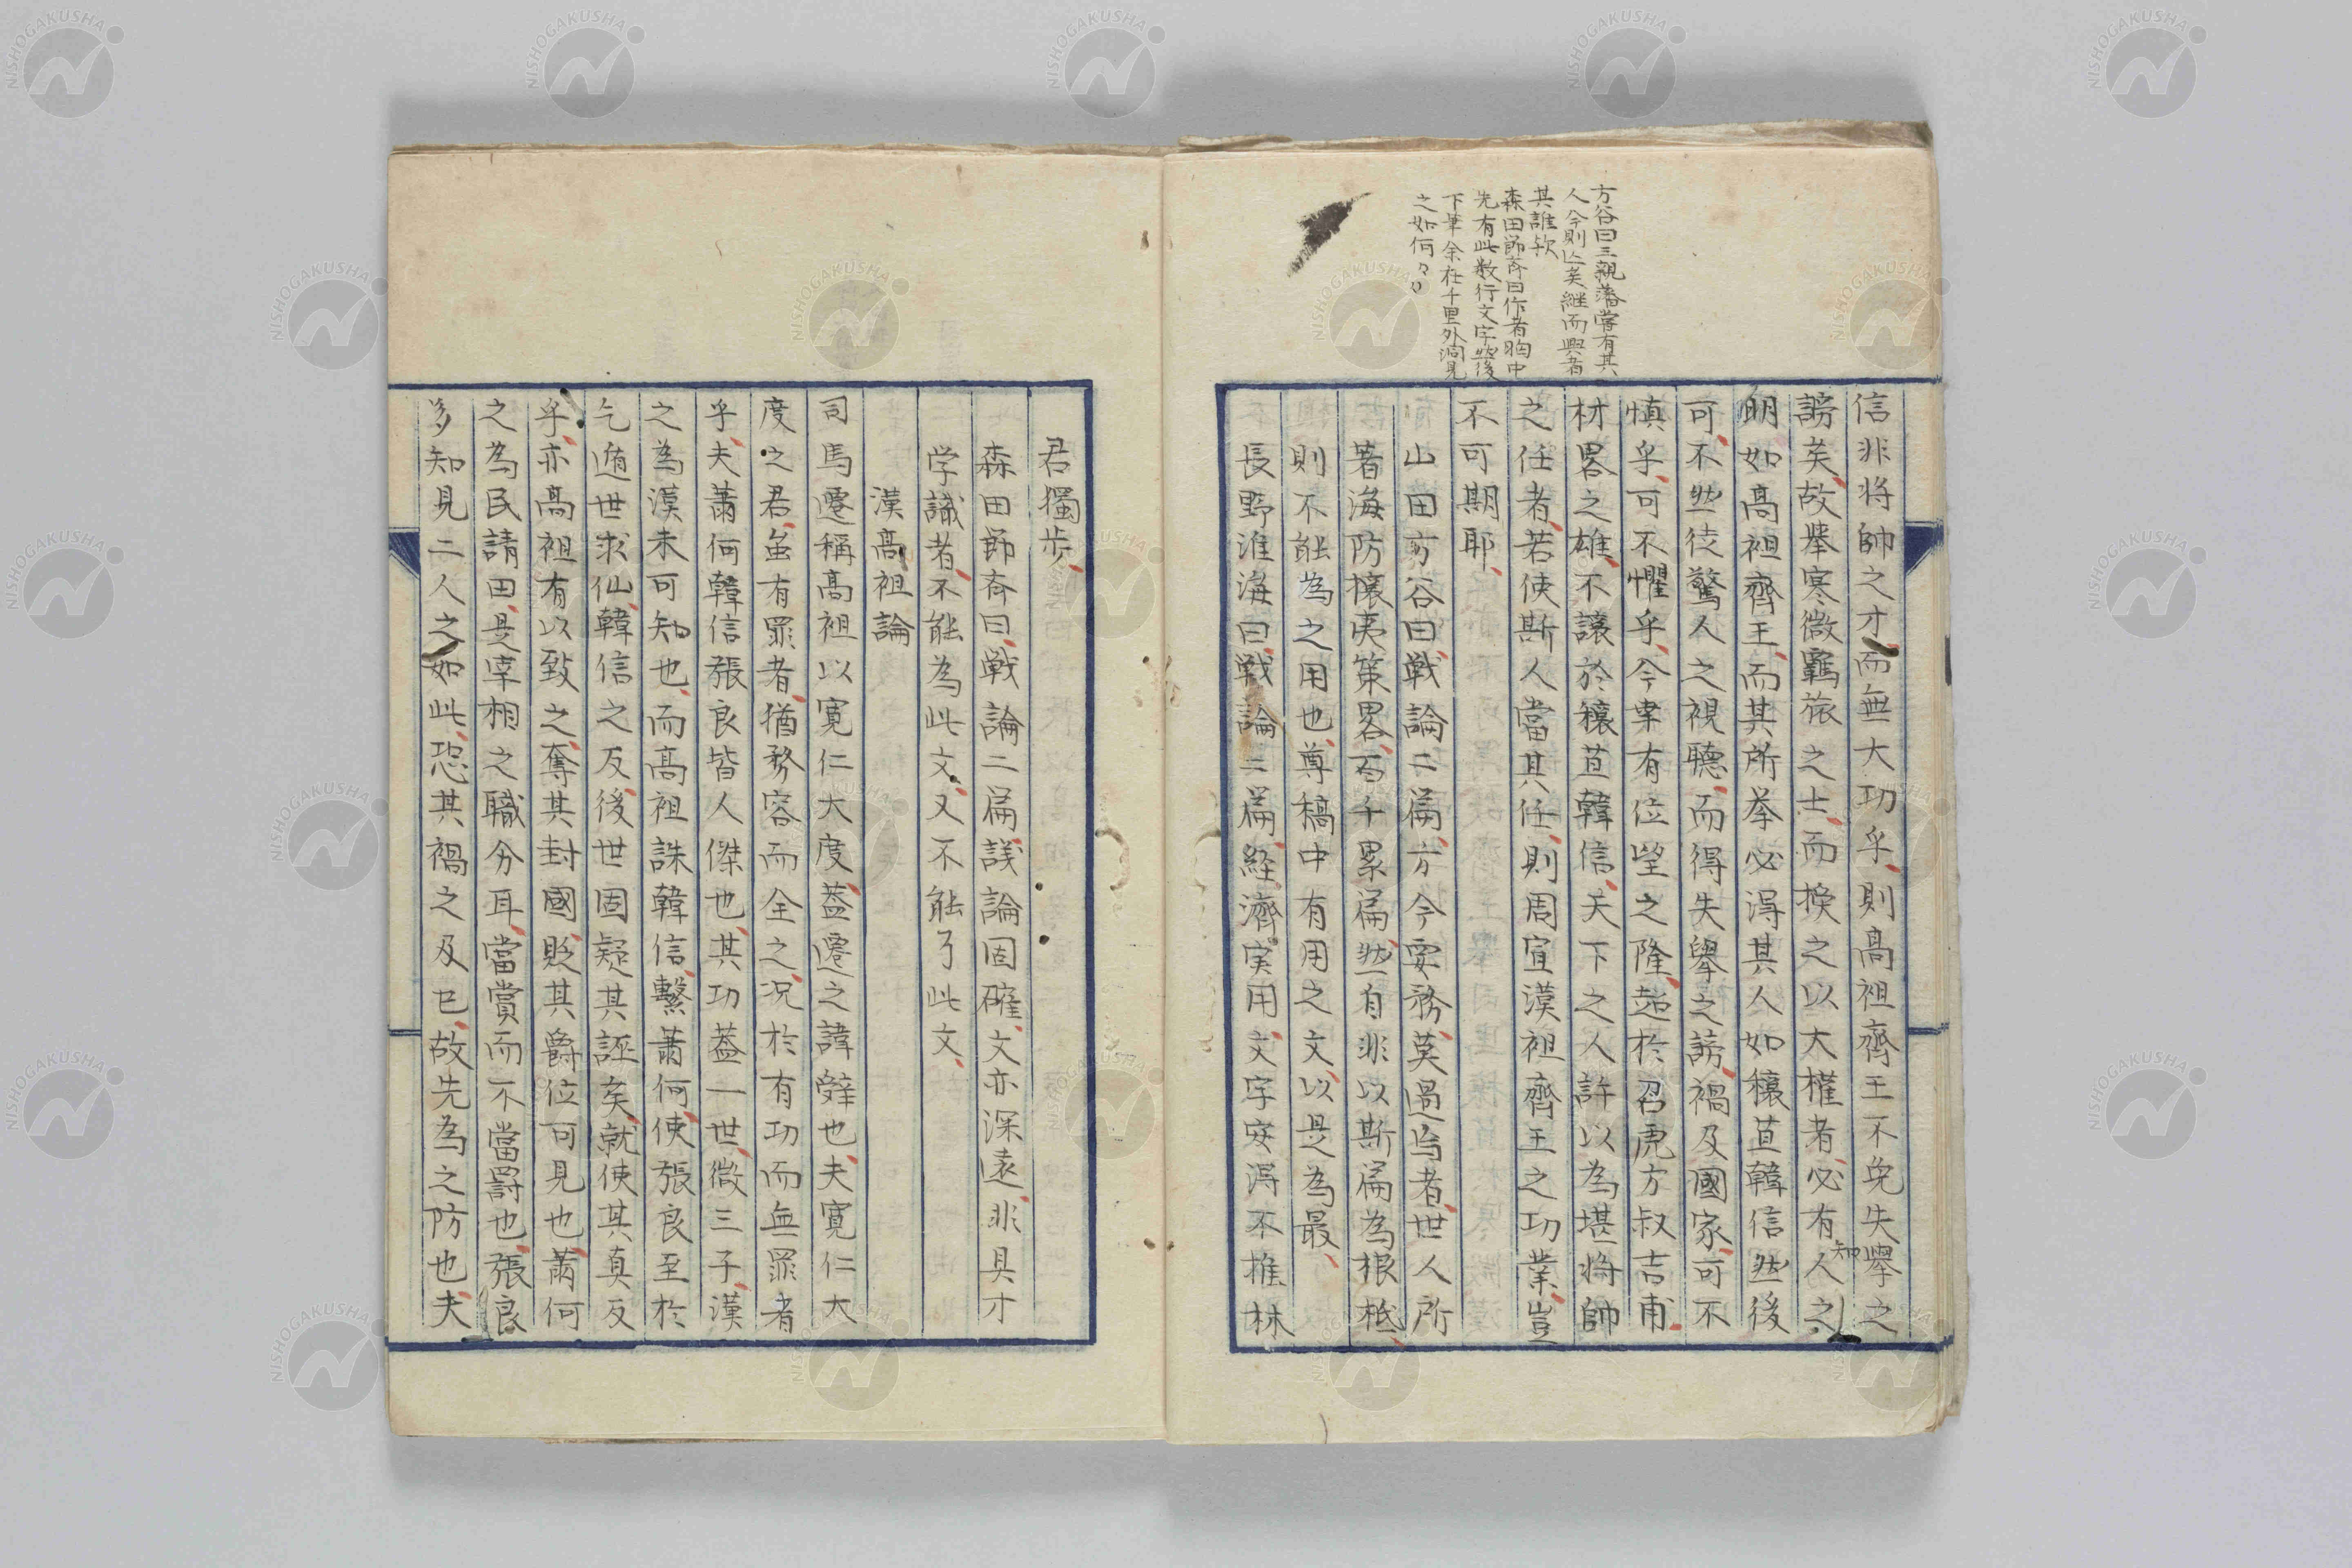 方谷曰三親藩嘗有其
人今則亡矣継而興者
其誰欤
森田節斉曰作者胸中
先有此数行文字然後
下筆余在千里外洞見
之如何々々
信非将帥之才而無大功乎則高祖齊王不免失擧之
謗矣故擧寒微羈旅之士而授之以大權者必有知人之
明如高祖齊王而其所挙必得其人如穰苴韓信然後
可不然徒驚人之視聴而得失擧之謗禍及國家可不
慎乎可不懼乎今果有位望之隆超於召虎方叔吉甫
材畧之雄不讓於穰苴韓信天下之人許以為堪将帥
之任者若使斯人當其任則周宣漢祖齊王之功業豈
不可期耶
山田方谷曰戦論二篇方今要務莫過焉者世人所
著海防攘夷策畧百千累篇然自非以斯篇為根柢
則不能為之用也尊稿中有用之文以是為最
長野淮海曰戦論二篇経濟実用文字安得不推林
君獨歩
森田節斉曰戦論二篇議論固確文亦深遠非具才
学識者不能為此文又不能了此文
漢高祖論
司馬遷稱高祖以寛仁大度蓋遷之諱辞也夫寛仁大
度之君虽有罪者猶務容而全之况於有功而無罪者
乎夫蕭何韓信張良皆人傑也其功蓋一世微三子漢
之為漢未可知也而高祖誅韓信繋蕭何使張良至於
乞遁世求仙韓信之反後世固疑其誣矣就使其真反
乎亦高祖有以致之奪其封國貶其爵位可見也蕭何
之為民請田是宰相之職分耳當賞而不當罸也張良
多知見二人之如此恐其禍之及已故先為之防也夫
NISHOGAKUSHA